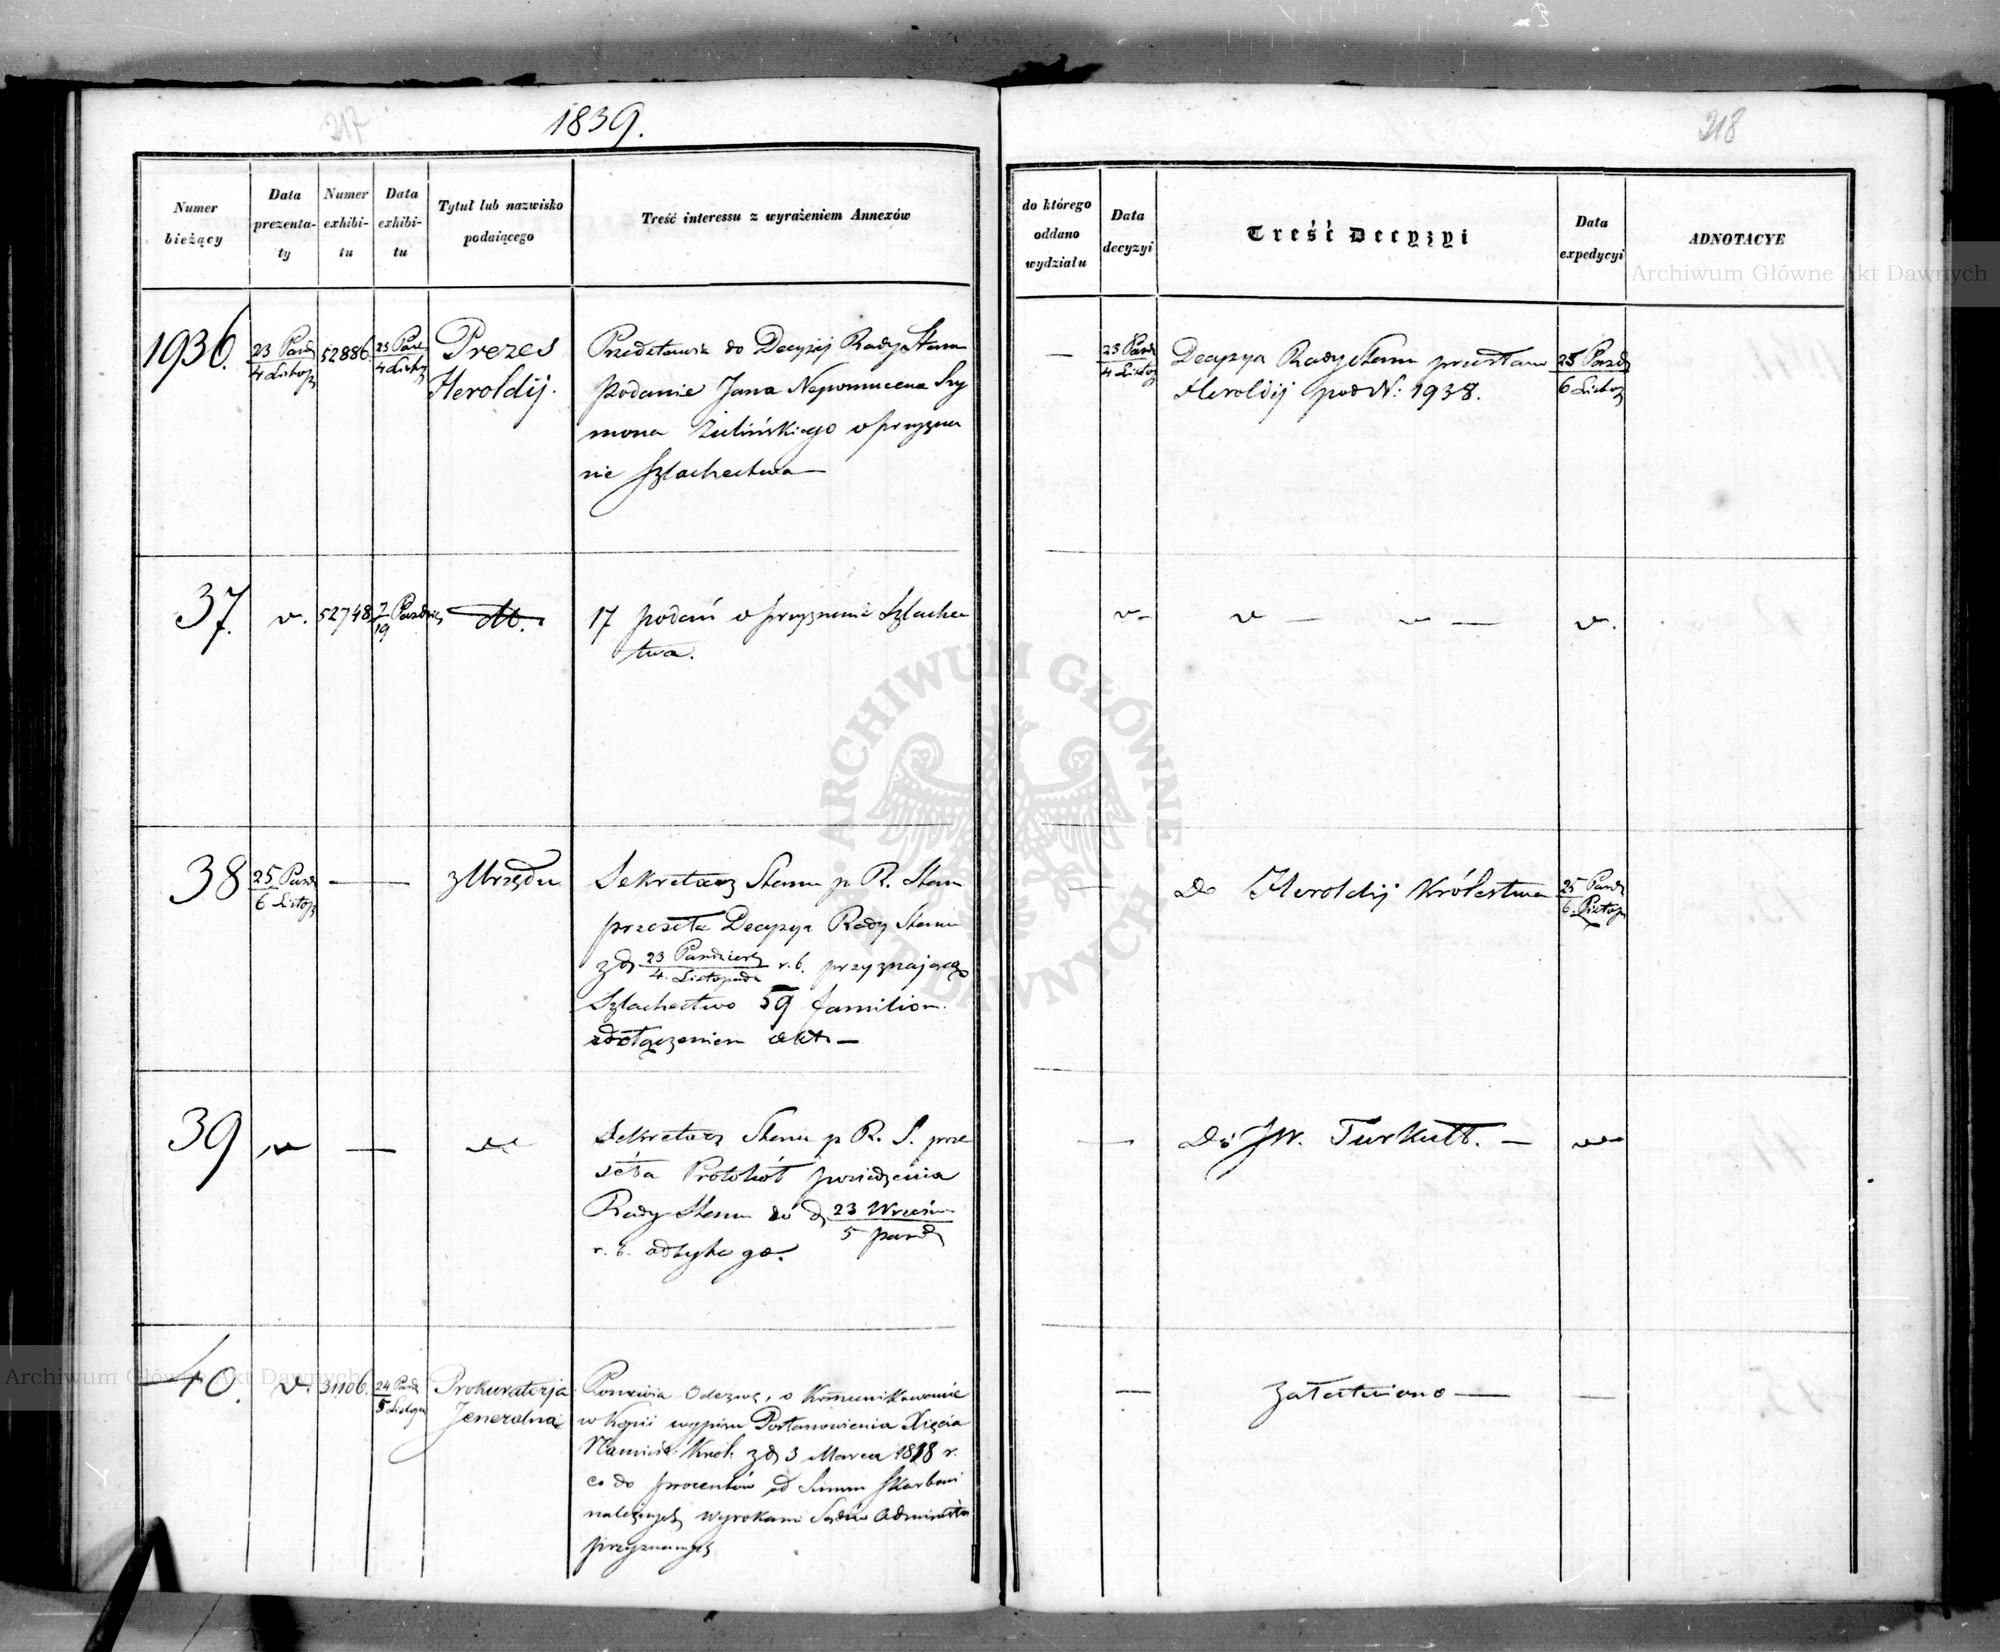 217
1839.
Numer bieżący
Data prezentaty
Numer exhibitu
Data exhibitu
Tytuł lub nazwisko podaiącego
Treść interessu z wyrażeniem Annexów
1936.
23 Paźd
4 Listop
52886
23 Paźd
4 Listop
Prezes
Heroldij.
Przedstawia do Decyzij Rady Stanu
podanie Jana Nepomucena Szy
mona Zulińskiego o przyzna
nie Szlachectwa —
37.
v.
52748
7 Paździer
19
17 podań o przyznanie Szlachec
twa.
38
25 Paźd
6 Listop
—
—
z Urzędu
Sekretarz Stanu p R. Stan
przesła Decyzya Rady Stanu
z d. 23 Październ
4. Listopada r. b. przyznającą
Szlachectwo 59 familiom.
z dołączeniem akt —
39
v
—
Sekretarz Stanu p R. S. prze
séła Protokół posiedzenia
Rady Stanu do d. 23 Wrześn
5 Paźd
r. b. odbytego.
40.
v.
31106.
24 Paźd
5 Listop
Prokuratorja
Jeneralna
Ponawia Odezwę, o Komunikowanie
w Kopii wypisu Postanowienia Xięcia
Namiest. Król. z d. 3 Marca 1818 r.
co do procentów od Summ Skarbowi
należnych wyrokami Sądów Administr
przyznanych
218
do którego oddano wydziału
Data decyzyi
Treść Decyzyi
Data expedycyi
ADNOTACYE
—
23 Paźd
4 Listop
Decyzya Rady Stanu przesłana
Heroldij pod N: 1938.
25 Paźd
6 Listop
v —
v — v —
v.
—
Do Heroldij Królestwa
25 Paźd
6. Listop
—
Do JW. Turkułł. —
—
załatwiono —
—
Archiwum Główne Akt Dawnych
Archiwum Główne Akt Dawnych
ARCHIWUM GŁÓWNE AKT DAWNYCH